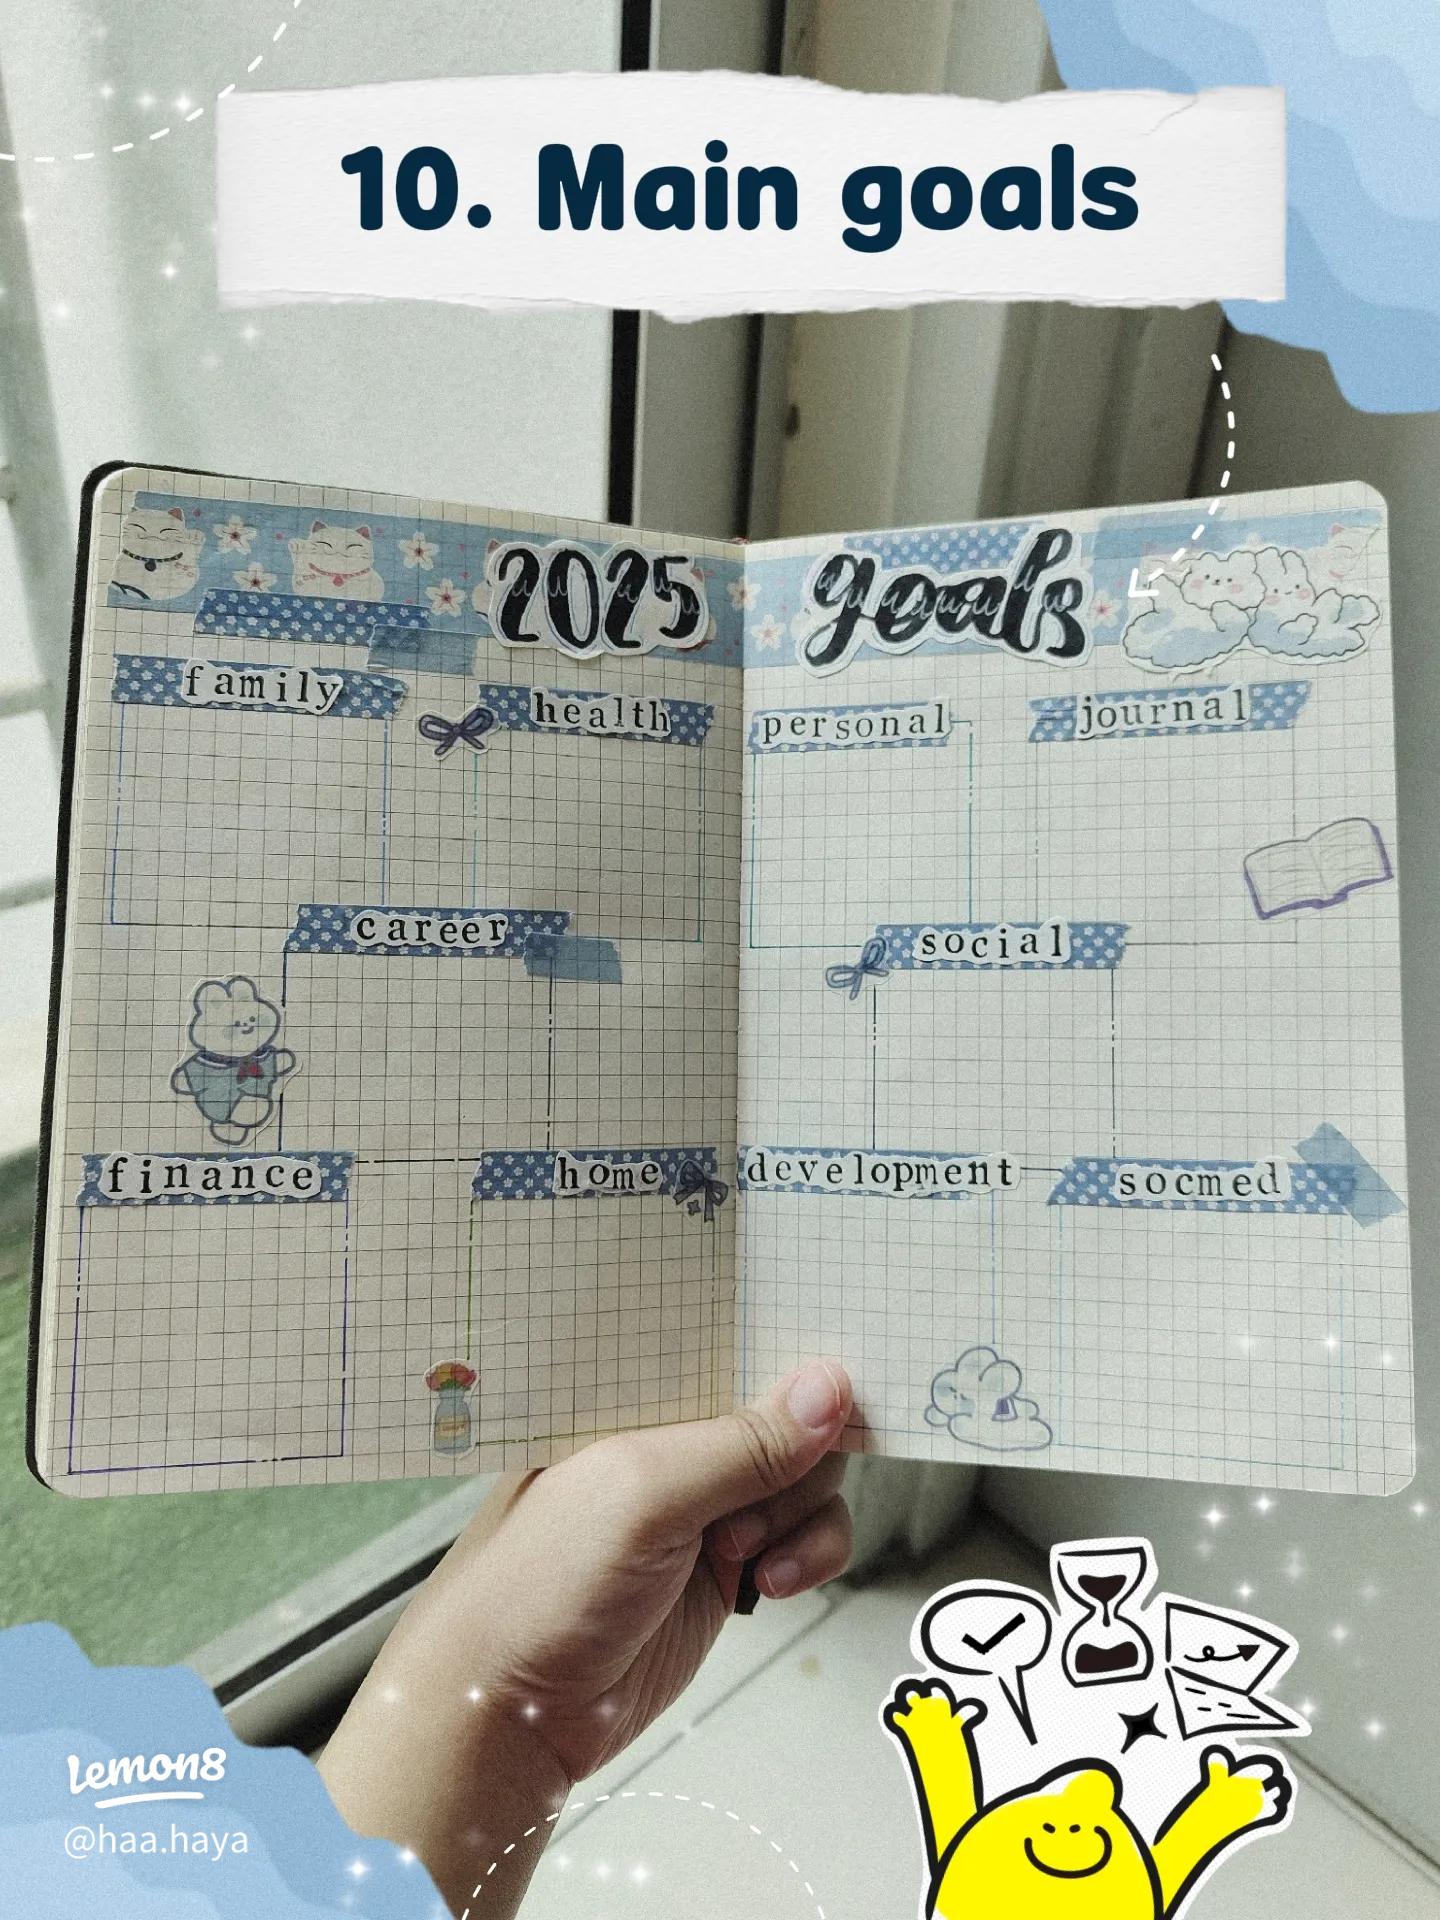 10. Main goals
2025 goals
family
health
personal
journal
career
social
finance
home
development
socmed
Lemon8
@haa.haya